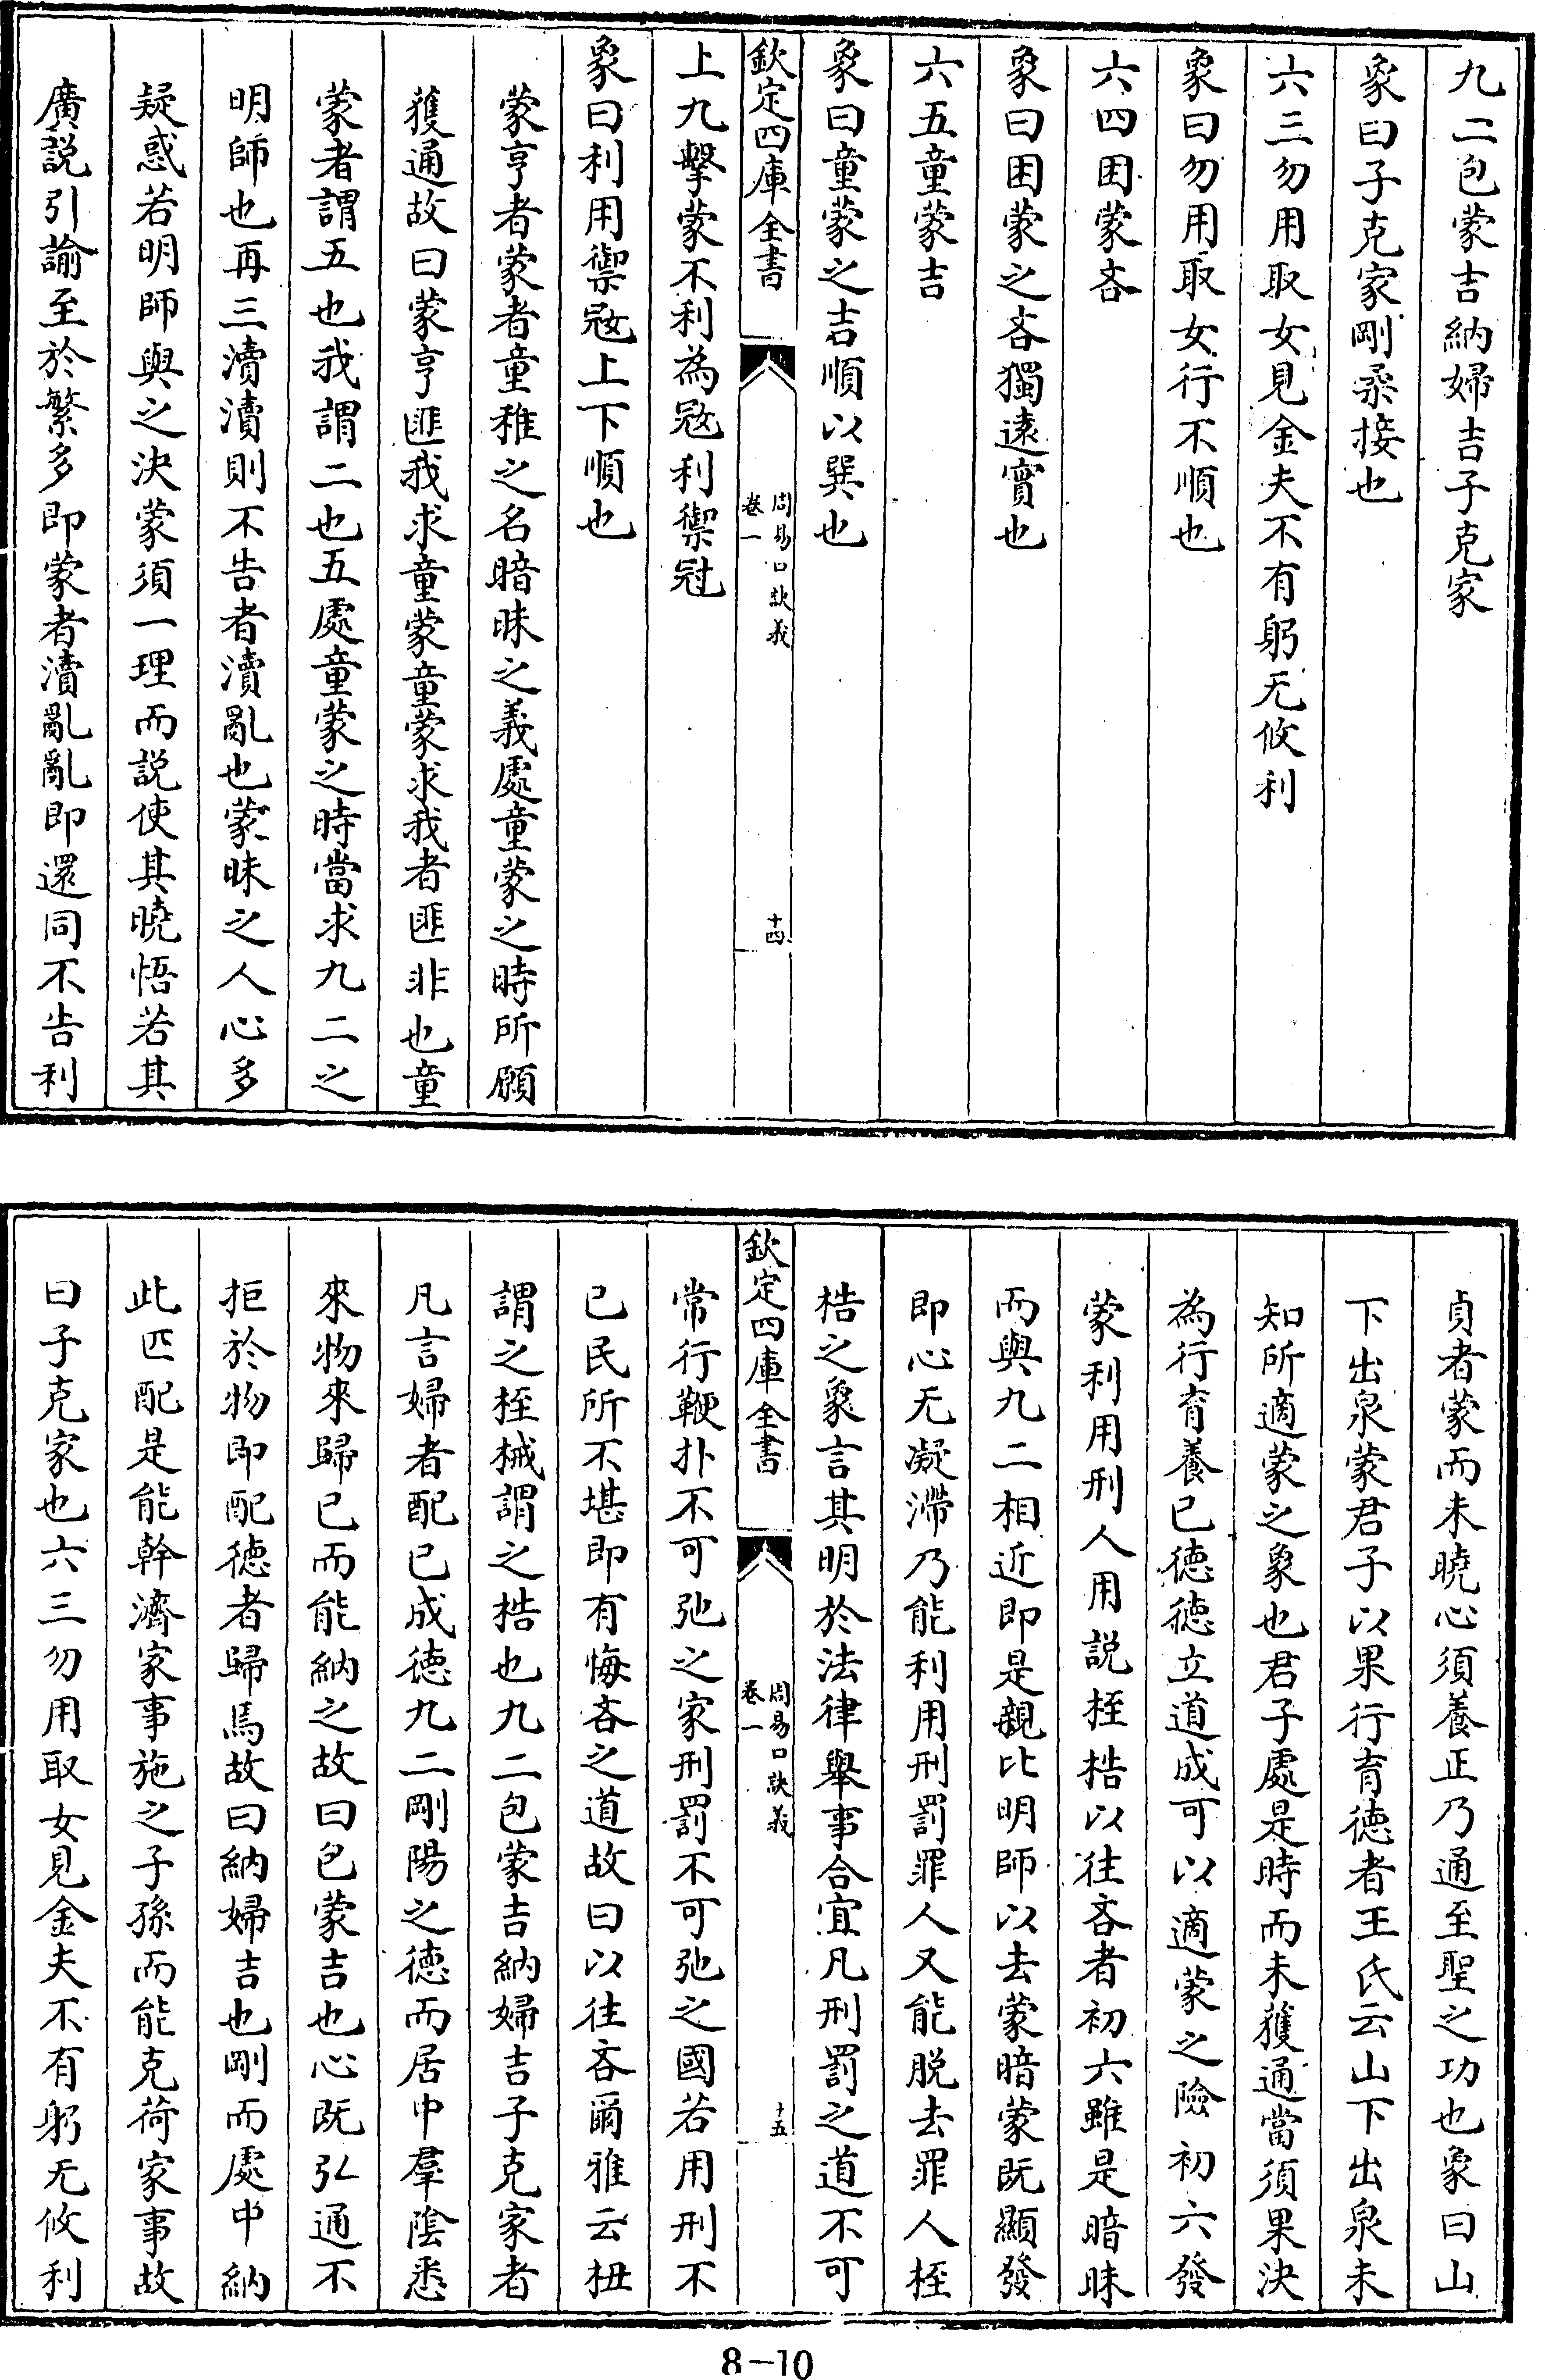 九二包蒙吉納婦吉子克家
象曰子克家剛柔接也
六三勿用取女見金夫不有躬无攸利
象曰勿用取女行不順也
六四困蒙吝
象曰困蒙之吝獨遠實也
六五童蒙吉
象曰童蒙之吉順以巽也
欽定四庫全書
周易口訣義
卷一
十四
上九擊蒙不利為冦利禦冦
象曰利用禦冦上下順也
蒙亨者蒙者童稚之名暗昧之義處童蒙之時所願
獲通故曰蒙亨匪我求童蒙童蒙求我者匪非也童
蒙者謂五也我謂二也五處童蒙之時當求九二之
明師也再三瀆瀆則不告者瀆亂也蒙昧之人心多
疑惑若明師與之決蒙須一理而説使其曉悟若其
廣説引諭至於繁多即蒙者瀆亂亂即還同不告利
貞者蒙而未曉心須養正乃通至聖之功也象曰山
下出泉蒙君子以果行育德者王氏云山下出泉未
知所適蒙之象也君子處是時而未獲通當須果決
為行育養已德德立道成可以適蒙之險初六發
蒙利用刑人用説桎梏以往吝者初六雖是暗昧
而與九二相近即是親比明師以去蒙暗蒙既顯發
即心无凝滯乃能利用刑罰罪人又能脱去罪人桎
梏之象言其明於法律舉事合宜凡刑罰之道不可
欽定四庫全書
周易口訣義
卷一
十五
常行鞭扑不可弛之家刑罰不可弛之國若用刑不
已民所不堪即有悔吝之道故曰以往吝爾雅云杻
謂之桎械謂之梏也九二包蒙吉納婦吉子克家者
凡言婦者配已成德九二剛陽之德而居中羣陰悉
來物來歸已而能納之故曰包蒙吉也心既弘通不
拒於物即配德者歸焉故曰納婦吉也剛而處中納
此匹配是能幹濟家事施之子孫而能克荷家事故
曰子克家也六三勿用取女見金夫不有躬无攸利
8-10